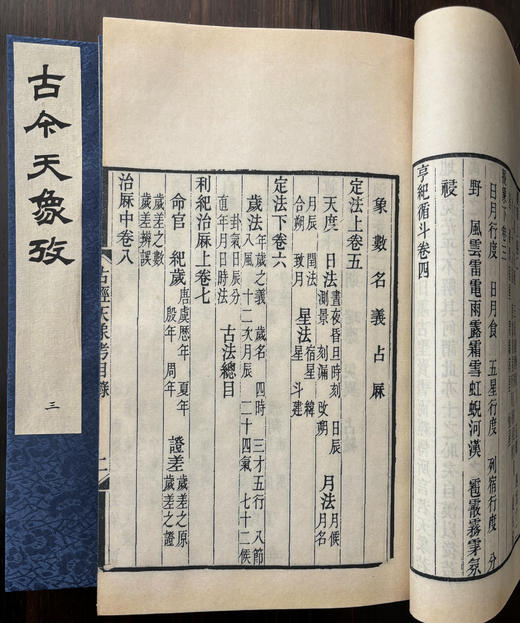 古今天象攷
三
日月行度　日月食　五星行度　列宿行度　分
野　風雲雷電雨露霜雪虹蜺河漢　雹霰霧霏氛
祲
亨紀循斗卷四
象數名義占厤
定法上卷五
天度　日法　晝夜昏旦時刻　日辰　測景　刻漏　改朔　月法　月候　月名
月辰　閏法　合朔　致月　星法　宿星　緯星　斗建
定法下卷六
歲法　年歲之義　歲名　四時　三才五行　八節
八風　十二次月辰　二十四氣　七十二候
卦氣日辰分
直年月日時法　古法總目
利紀治厤上卷七
命官　紀歲　唐虞歷年　夏年　殷年　周年　證差　歲差之原　歲差之證
歲差之數
歲差辨誤
治厤中卷八
古經天象考目錄
二